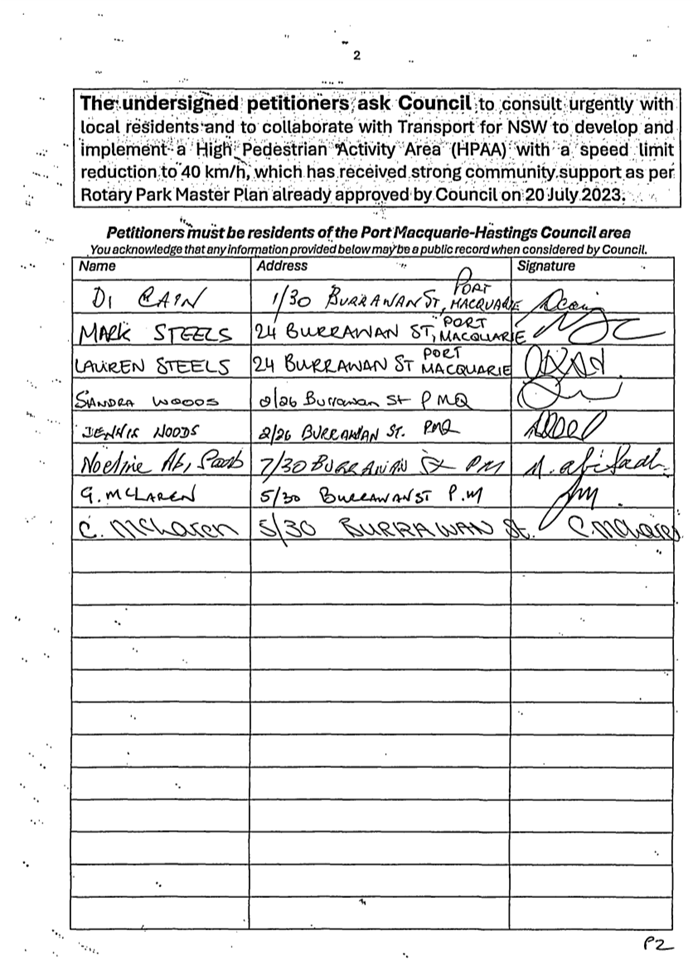 2
The undersigned petitioners ask Council to consult urgently with
local residents and to collaborate with Transport for NSW to develop and
implement a High Pedestrian Activity Area (HPAA) with a speed limit
reduction to 40 km/h, which has received strong community support as per
Rotary Park Master Plan already approved by Council on 20 July 2023.
Petitioners must be residents of the Port Macquarie-Hastings Council area
You acknowledge that any information provided below may be a public record when considered by Council.
Name Address Signature
DI RAIN 1/30 BURRAWAN ST, PORT MACQUARIE
MARK STEELS 24 BURRAWAN ST, PORT MACQUARIE
LAUREN STEELS 24 BURRAWAN ST PORT MACQUARIE
SANDRA WOODS 2/26 Burrawan St PMQ
DENNIS WOODS 2/26 BURRAWAN ST. PMQ
Noeline 7/30 BURRAWAN St PM
G. MCLAREN 5/30 BURRAWAN ST P.M
C. McLaren 5/30 BURRAWAN St. C. McLaren
P2